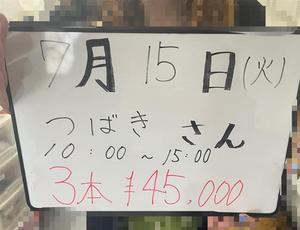 7月15日(火)
つばきさん
10:00~15:00
3本 ¥45,000